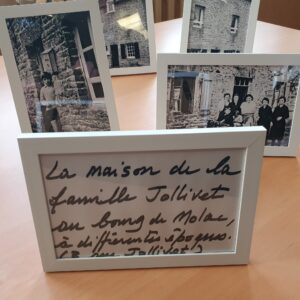 La maison de la
famille Jollivet
au bourg de Molac,
à différentes époques.
(3 rue Jollivet)